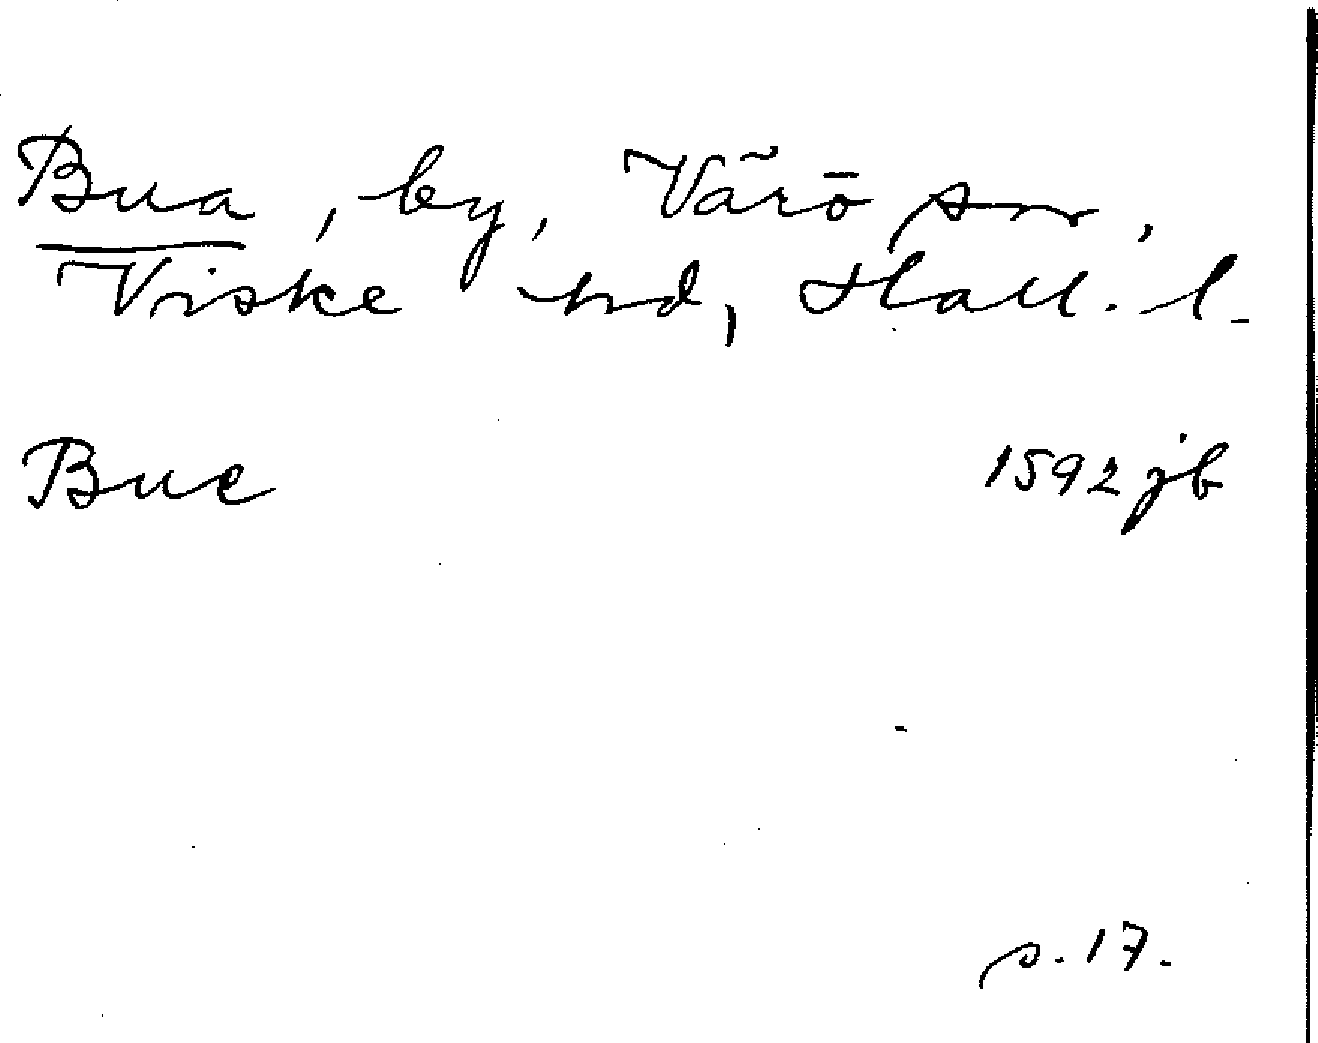 Bua, by, Värö sn,
Viske hd, Hall. l.
Bue 1592 jb
s. 17.